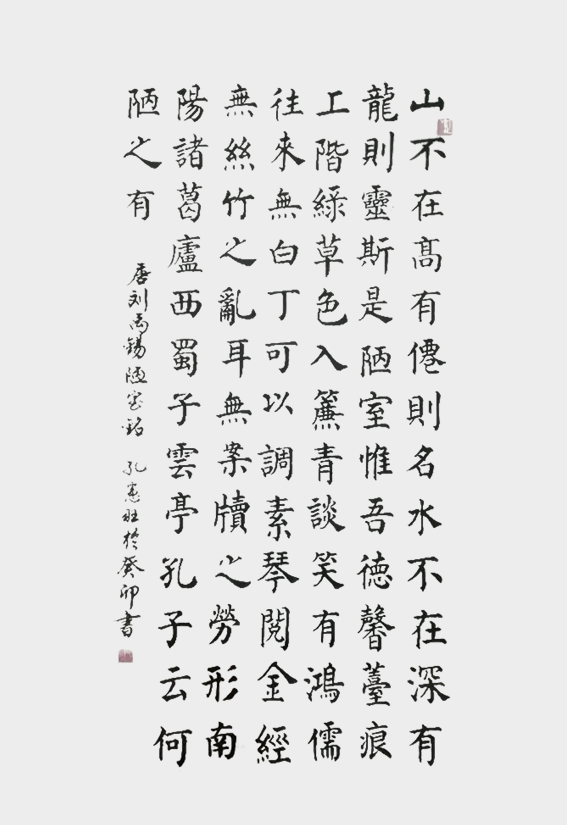 山不在髙有僊則名水不在深有
龍則靈斯是陋室惟吾德馨薹痕
上階綠草色入簾青談笑有鴻儒
往來無白丁可以調素琴閱金經
無絲竹之亂耳無案牘之勞形南
陽諸葛廬西蜀子雲亭孔子云何
陋之有
唐刘禹锡陋室銘 孔憲於癸卯書